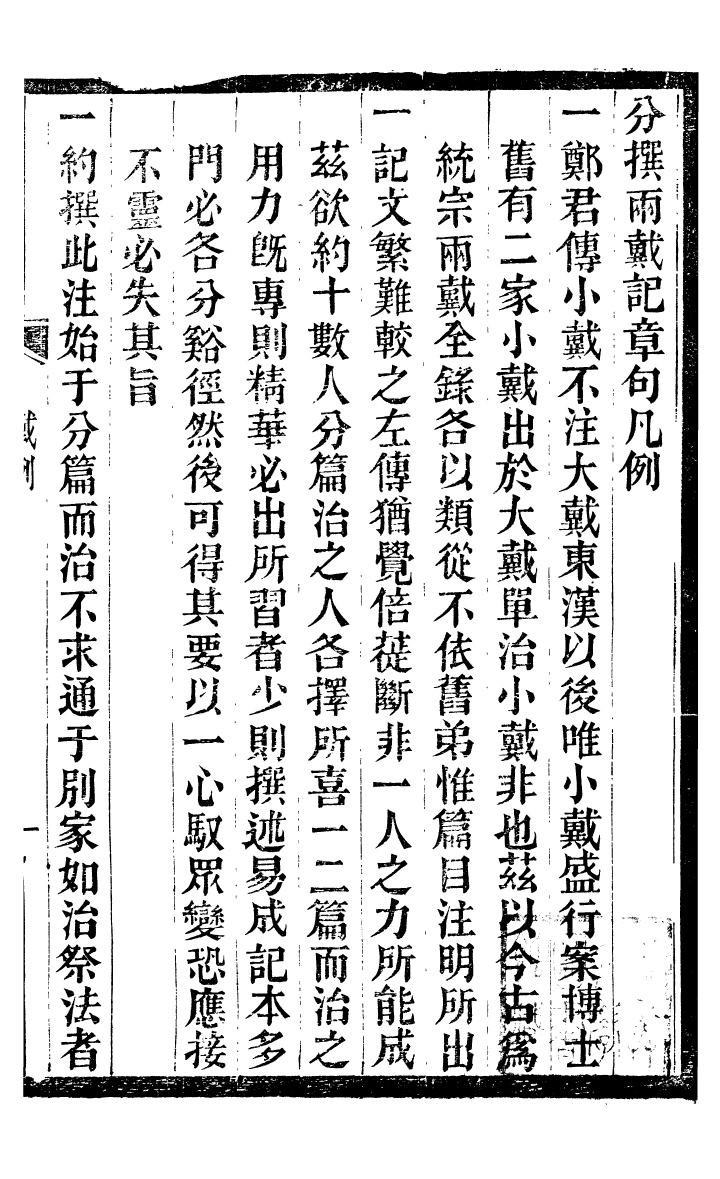 分撰兩戴記章句凡例
一鄭君傳小戴不注大戴東漢以後唯小戴盛行案博士
舊有二家小戴出於大戴單治小戴非也茲以今古爲
統宗兩戴全錄各以類從不依舊弟惟篇目注明所出
一記文繁難較之左傳猶覺倍蓰斷非一人之力所能成
茲欲約十數人分篇治之人各擇所喜一二篇而治之
用力既專則精華必出所習者少則撰述易成記本多
門必各分谿徑然後可得其要以一心馭眾變恐應接
不靈必失其旨
一約撰此注始于分篇而治不求通于別家如治祭法者
例
一